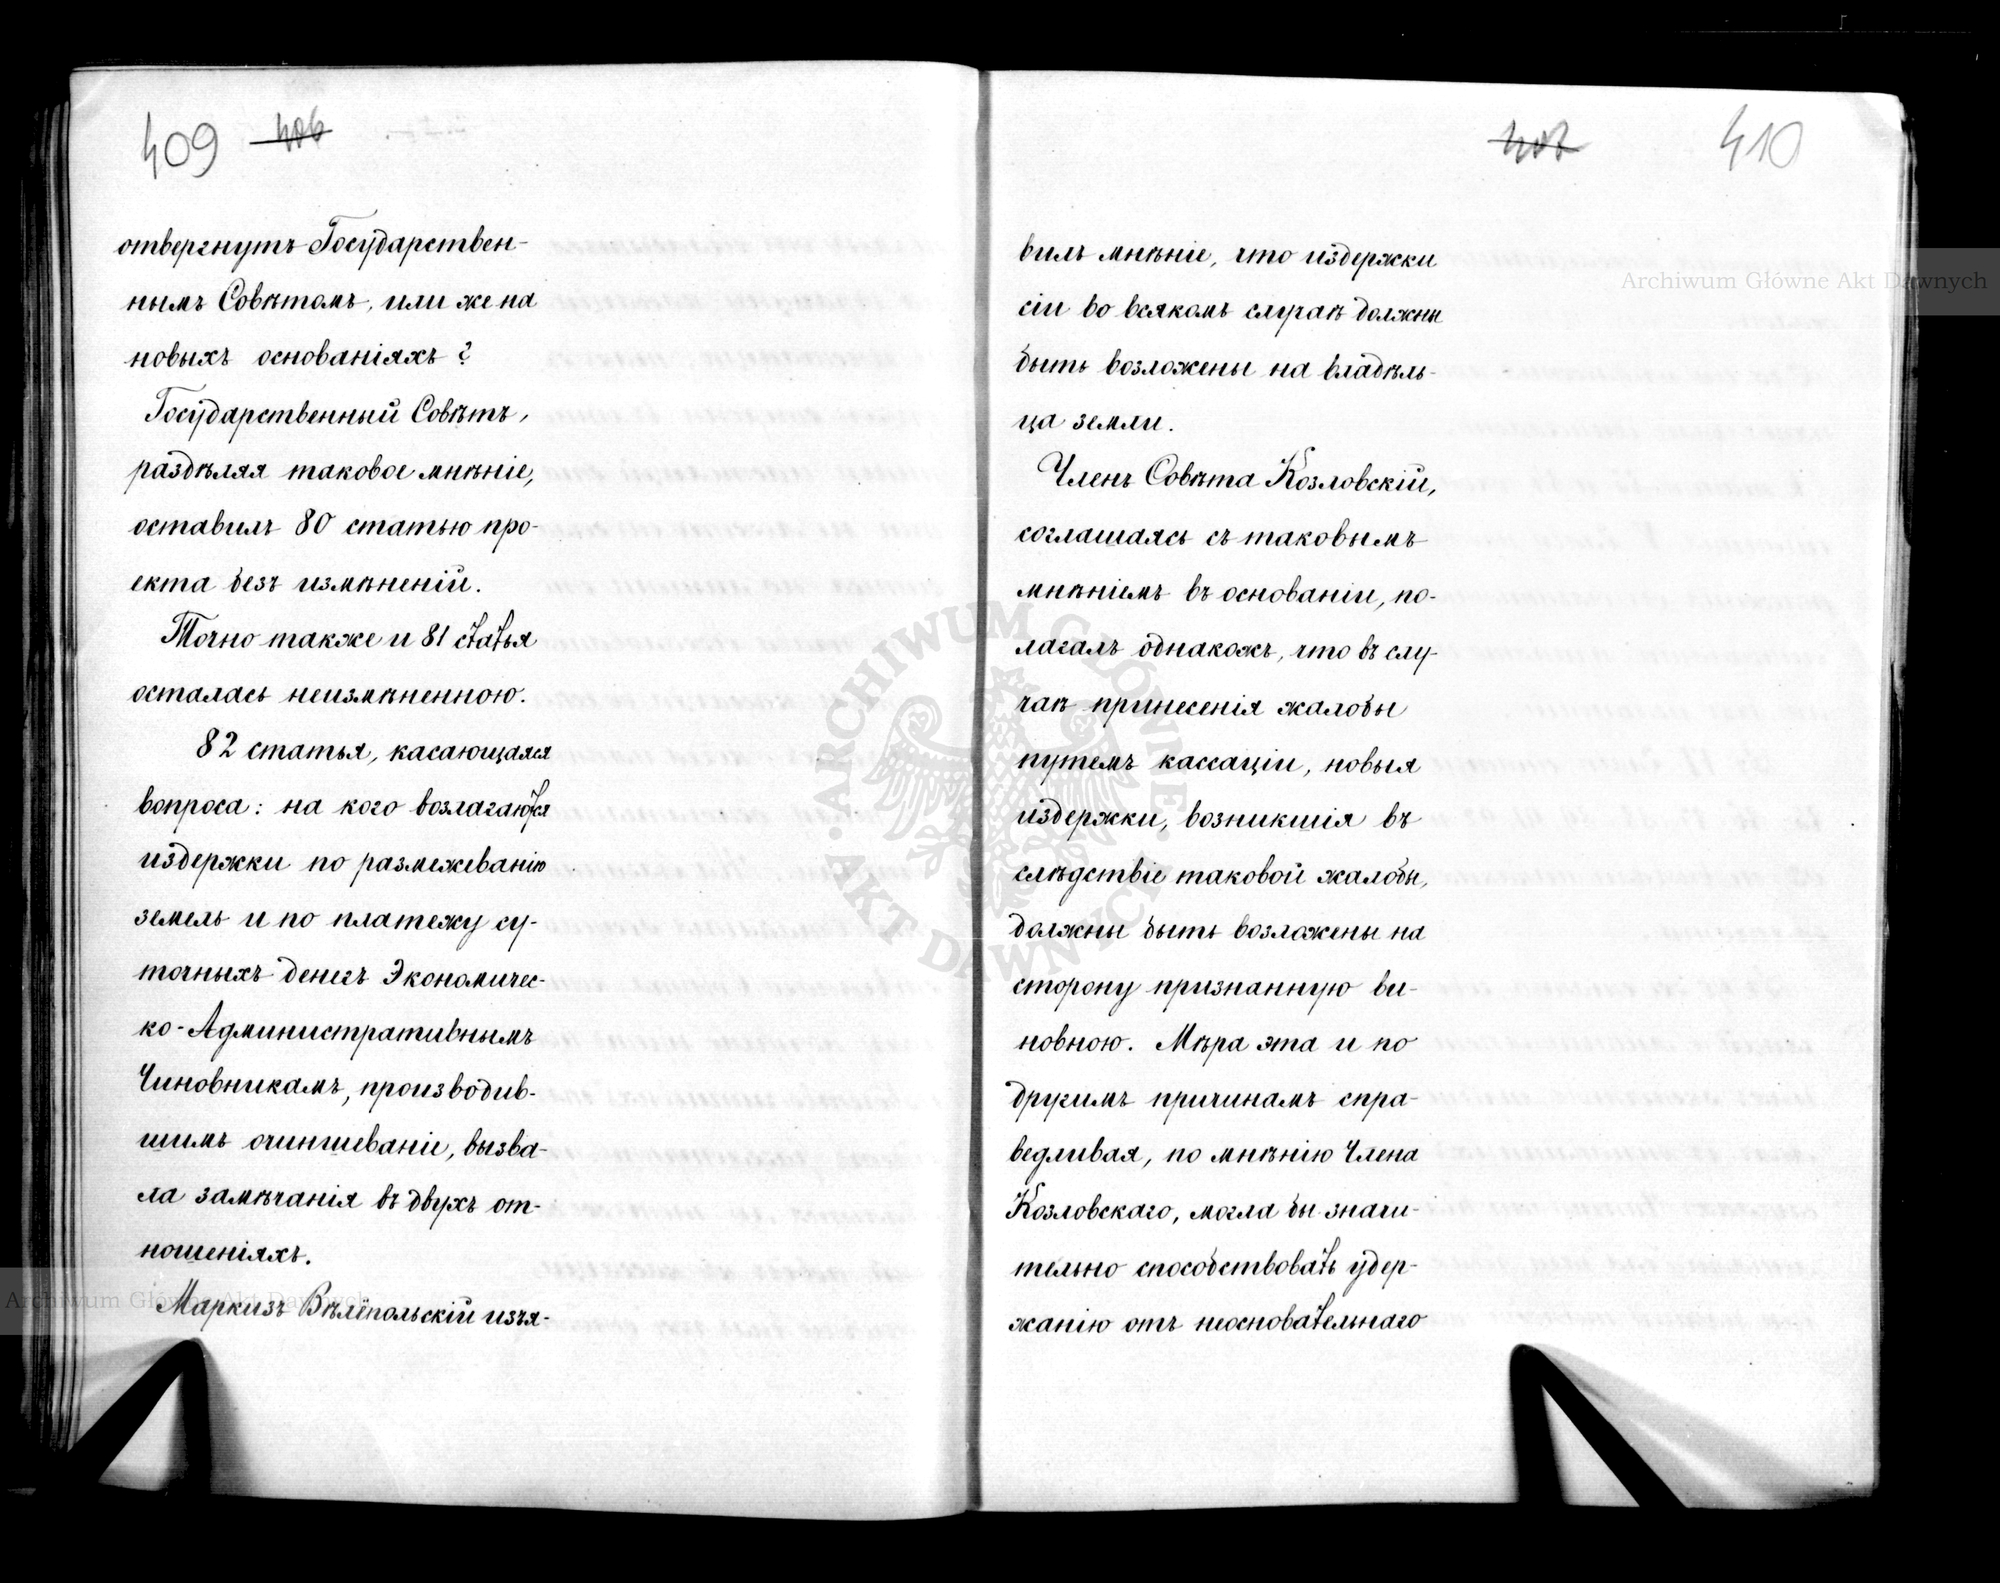 409 406
отвергнутъ Государствен-
нымъ Совѣтомъ, или же на
новыхъ основаніяхъ?
Государственный Совѣтъ,
раздѣляя таковое мнѣніе,
оставилъ 80 статью про-
екта безъ измѣненій.
Точно также и 81 статья
осталась неизмѣненною.
82 статья, касающаяся
вопроса: на кого возлагаются
издержки по размежеванію
земель и по платежу су-
точныхъ денегъ Экономичес-
ко-Административнымъ
Чиновникамъ, производив-
шимъ очиншеваніе, вызва-
ла замѣчанія въ двухъ от-
ношеніяхъ.
Маркизъ Вѣлёпольскій изъя-
407 410
вилъ мнѣніе, что издержки
сіи во всякомъ случаѣ должны
быть возложены на владѣль-
ца земли.
Членъ Совѣта Козловскій,
соглашаясь съ таковымъ
мнѣніемъ въ основаніи, по-
лагалъ однакожъ, что въ слу-
чаѣ принесенія жалобы
путемъ кассаціи, новыя
издержки, возникшія въ
слѣдствіе таковой жалобы,
должны быть возложены на
сторону признанную ви-
новною. Мѣра эта и по
другимъ причинамъ спра-
ведливая, по мнѣнію Члена
Козловскаго, могла бы значи-
тельно способствовать удер-
жанію отъ неосновательнаго
Archiwum Główne Akt Dawnych
Archiwum Główne Akt Dawnych
ARCHIWUM GŁÓWNE
AKT DAWNYCH